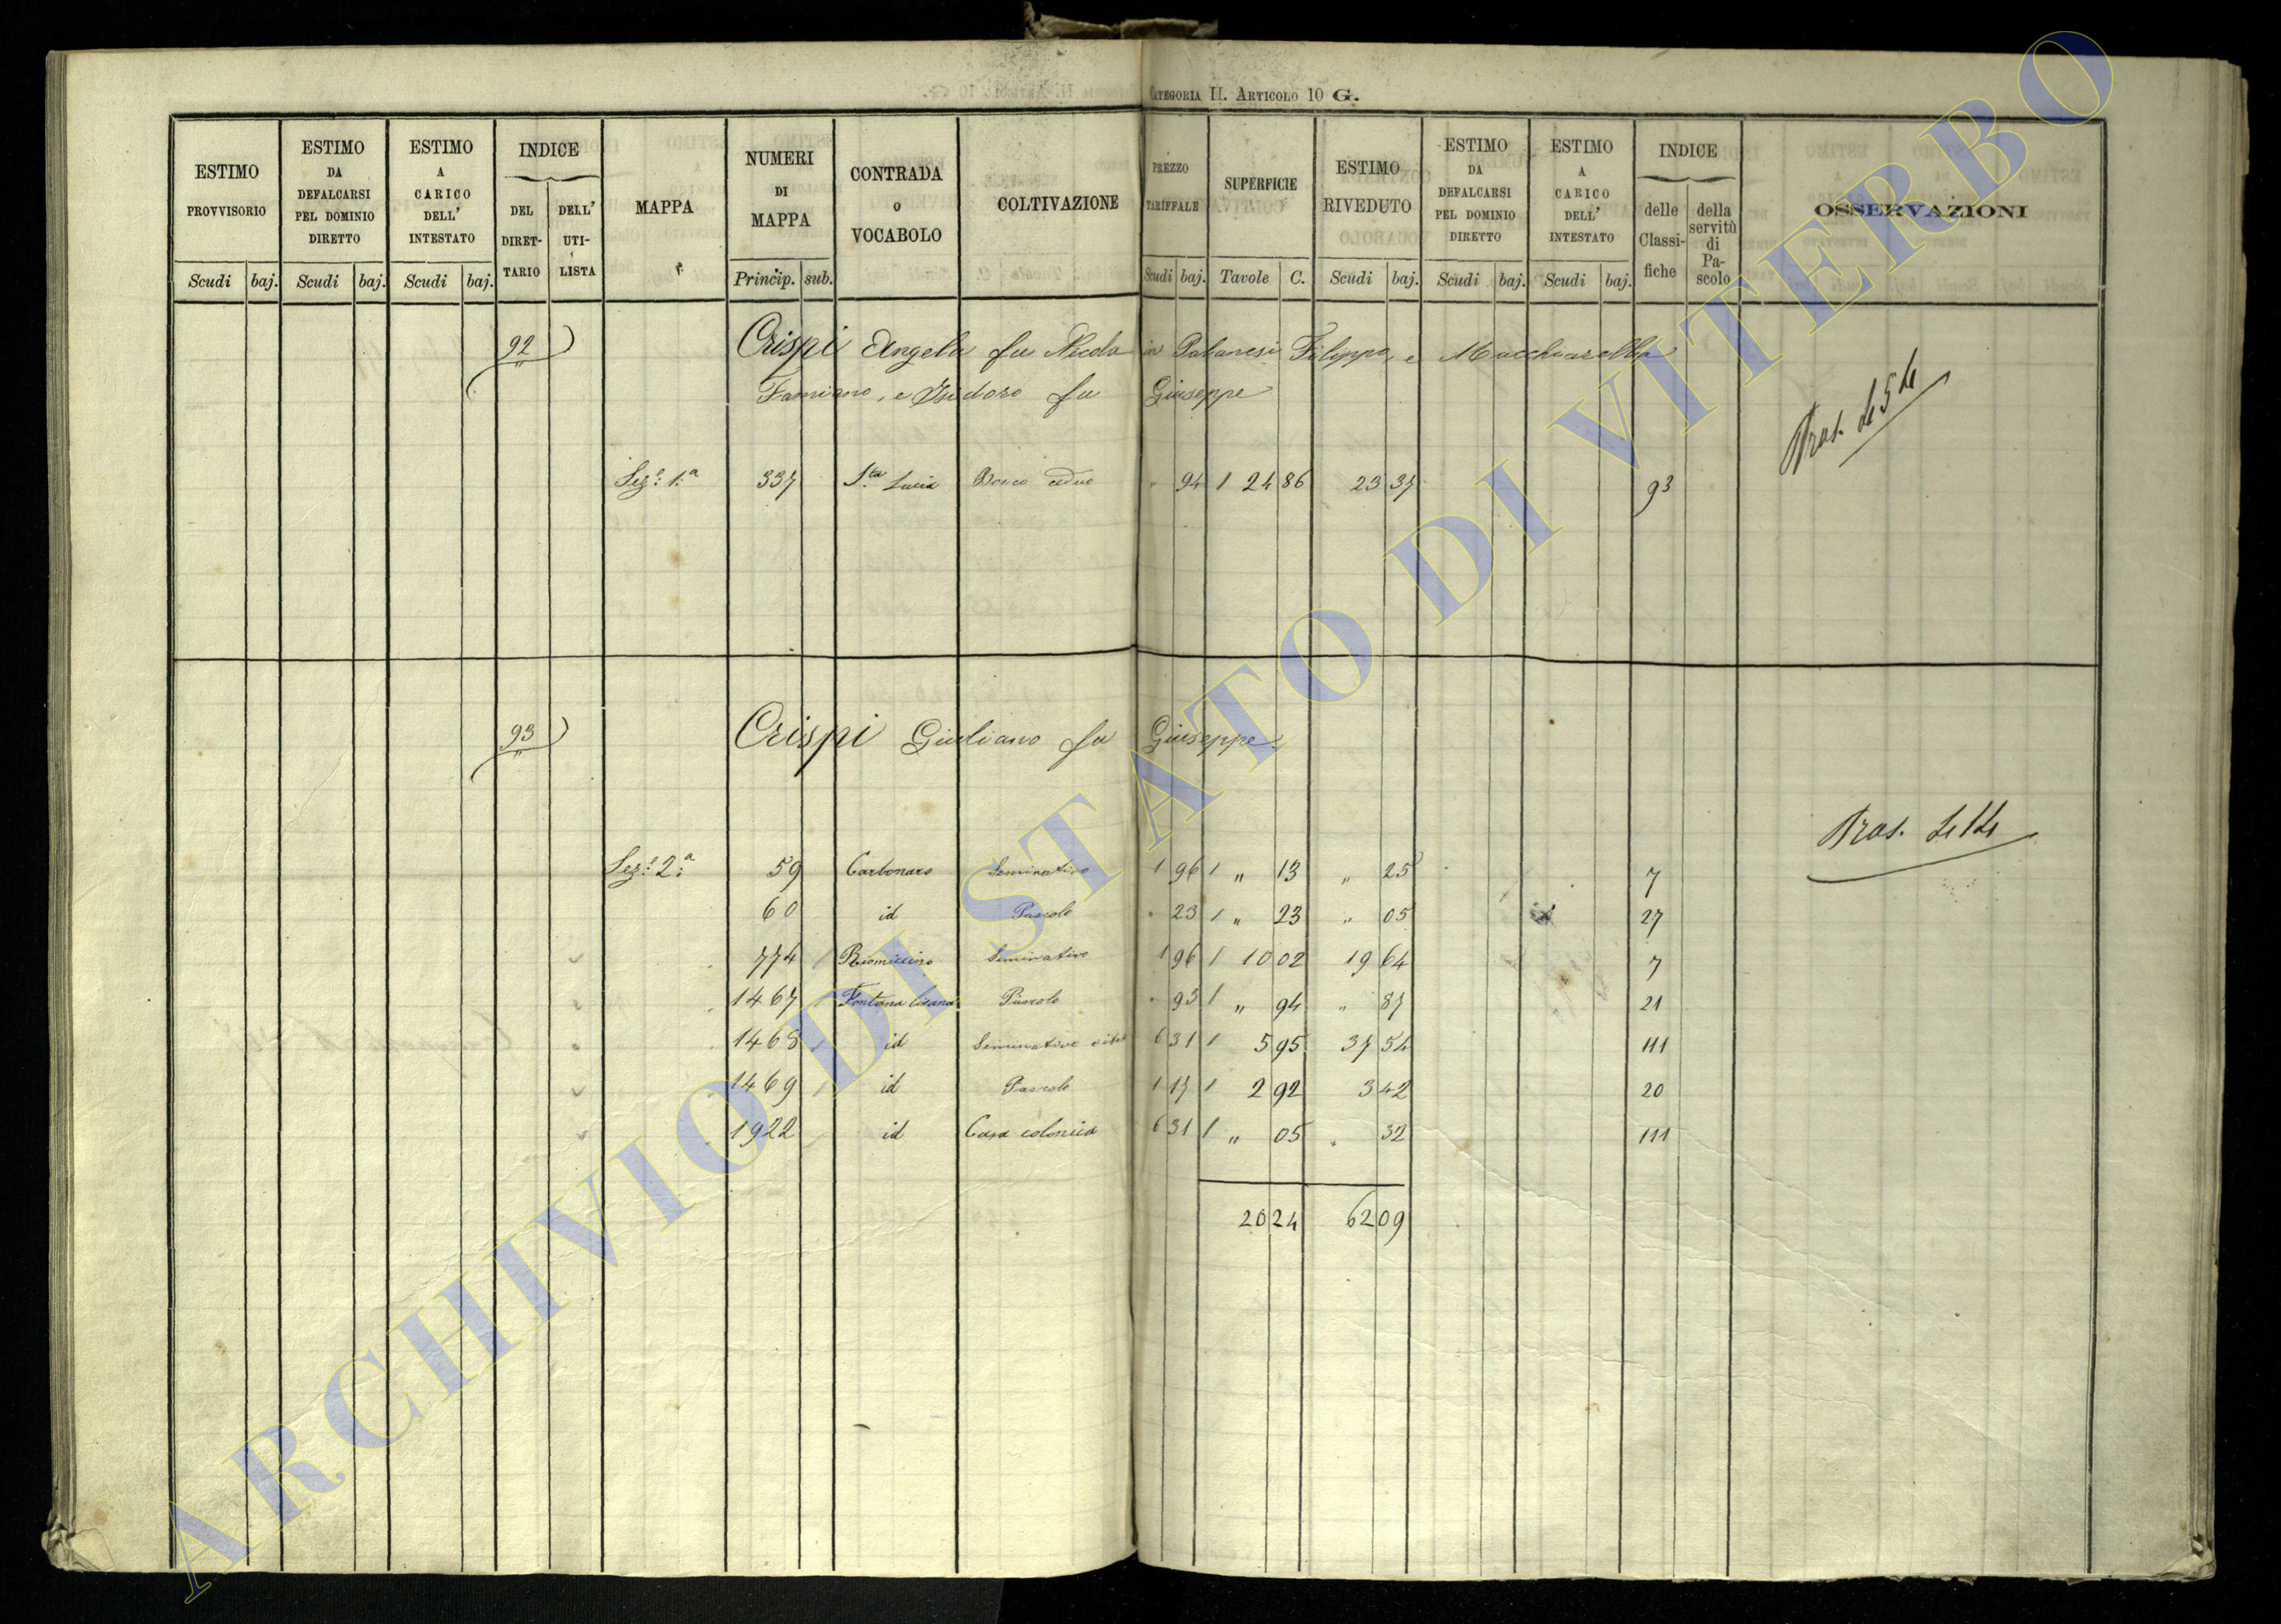 CATEGORIA II. ARTICOLO 10 G.
ESTIMO PROVVISORIO Scudi baj. ESTIMO DA DEFALCARSI PEL DOMINIO DIRETTO Scudi baj. ESTIMO A CARICO DELL' INTESTATO Scudi baj. INDICE DEL DIRET-TARIO DELL' UTI-LISTA MAPPA NUMERI DI MAPPA Princip. sub. CONTRADA O VOCABOLO COLTIVAZIONE PREZZO TARIFFALE Scudi baj. SUPERFICIE Tavole C. ESTIMO RIVEDUTO Scudi baj. ESTIMO DA DEFALCARSI PEL DOMINIO DIRETTO Scudi baj. ESTIMO A CARICO DELL' INTESTATO Scudi baj. INDICE delle Classi-fiche della servitù di Pa-scolo OSSERVAZIONI
92 Crispi Angela fu Nicola in Palanesi Filippo, e Macchiarella
Famiano, e Isidoro fu Giuseppe
Sez.e 1.a 337 S.ta Lucia Bosco ceduo " 94 / 24 86 23 37 93
93 Crispi Giuliano fu Giuseppe
Sez.e 2.a 59 Carbonaro Seminativo 1 96 / " 13 " 25 7
60 id Pascolo " 23 / " 23 " 05 27
774 Riomiccino Seminativo 1 96 / 10 02 19 64 7
1467 Fontana Pascolo " 93 / " 94 " 87 21
1468 id Seminativo vitat 6 31 / 5 95 37 54 111
1469 id Pascolo 1 17 / 2 92 3 42 20
1922 id Casa colonica 6 31 / " 05 " 32 111
20 24 62 09
ARCHIVIO DI STATO DI VITERBO